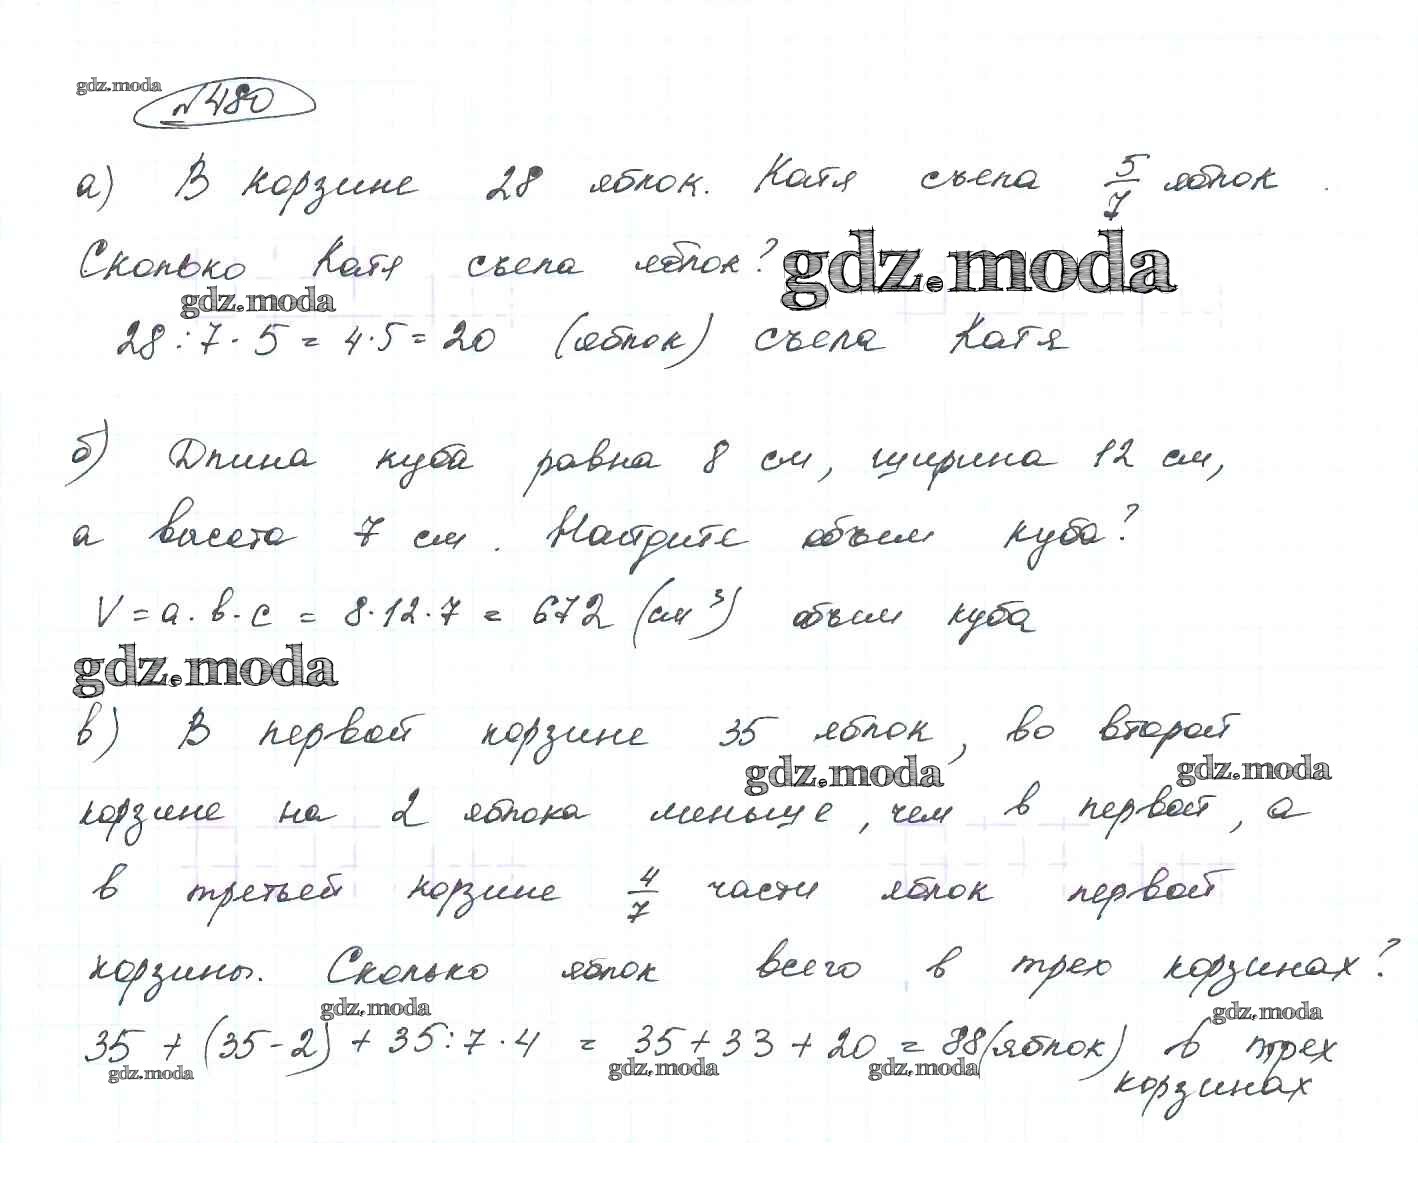 gdz.moda
№480
а) В корзине 28 яблок. Катя съела 5/7 яблок.
Сколько Катя съела яблок? gdz.moda
gdz.moda
28:7·5=4·5=20 (яблок) съела Катя
б) Длина куба равна 8 см, ширина 12 см,
а высота 7 см. Найдите объем куба?
V=a·b·c=8·12·7=672 (см³) объем куба
gdz.moda
в) В первой корзине 35 яблок, во второй
gdz.moda gdz.moda
корзине на 2 яблока меньше, чем в первой, а
в третьей корзине 4/7 части яблок первой
корзины. Сколько яблок всего в трех корзинах?
gdz.moda gdz.moda
35+(35-2)+35:7·4=35+33+20=88(яблок) в трех
gdz.moda gdz.moda gdz.moda
корзинах